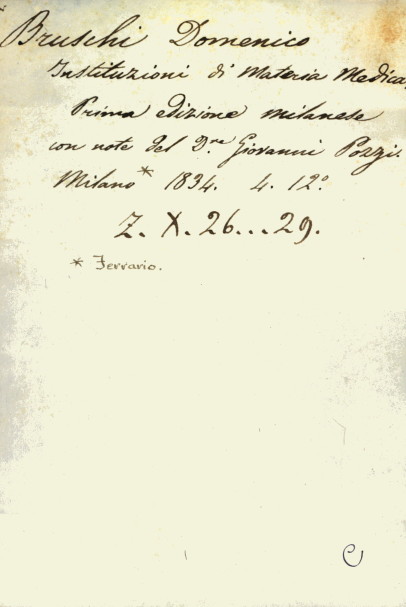 Bruschi Domenico
Instituzioni di Materia Medica,
Prima edizione milanese
con note del D.re Giovanni Pozzi.
Milano* 1834. 4. 12°.
Z. X. 26...29.
* Ferrario.
C